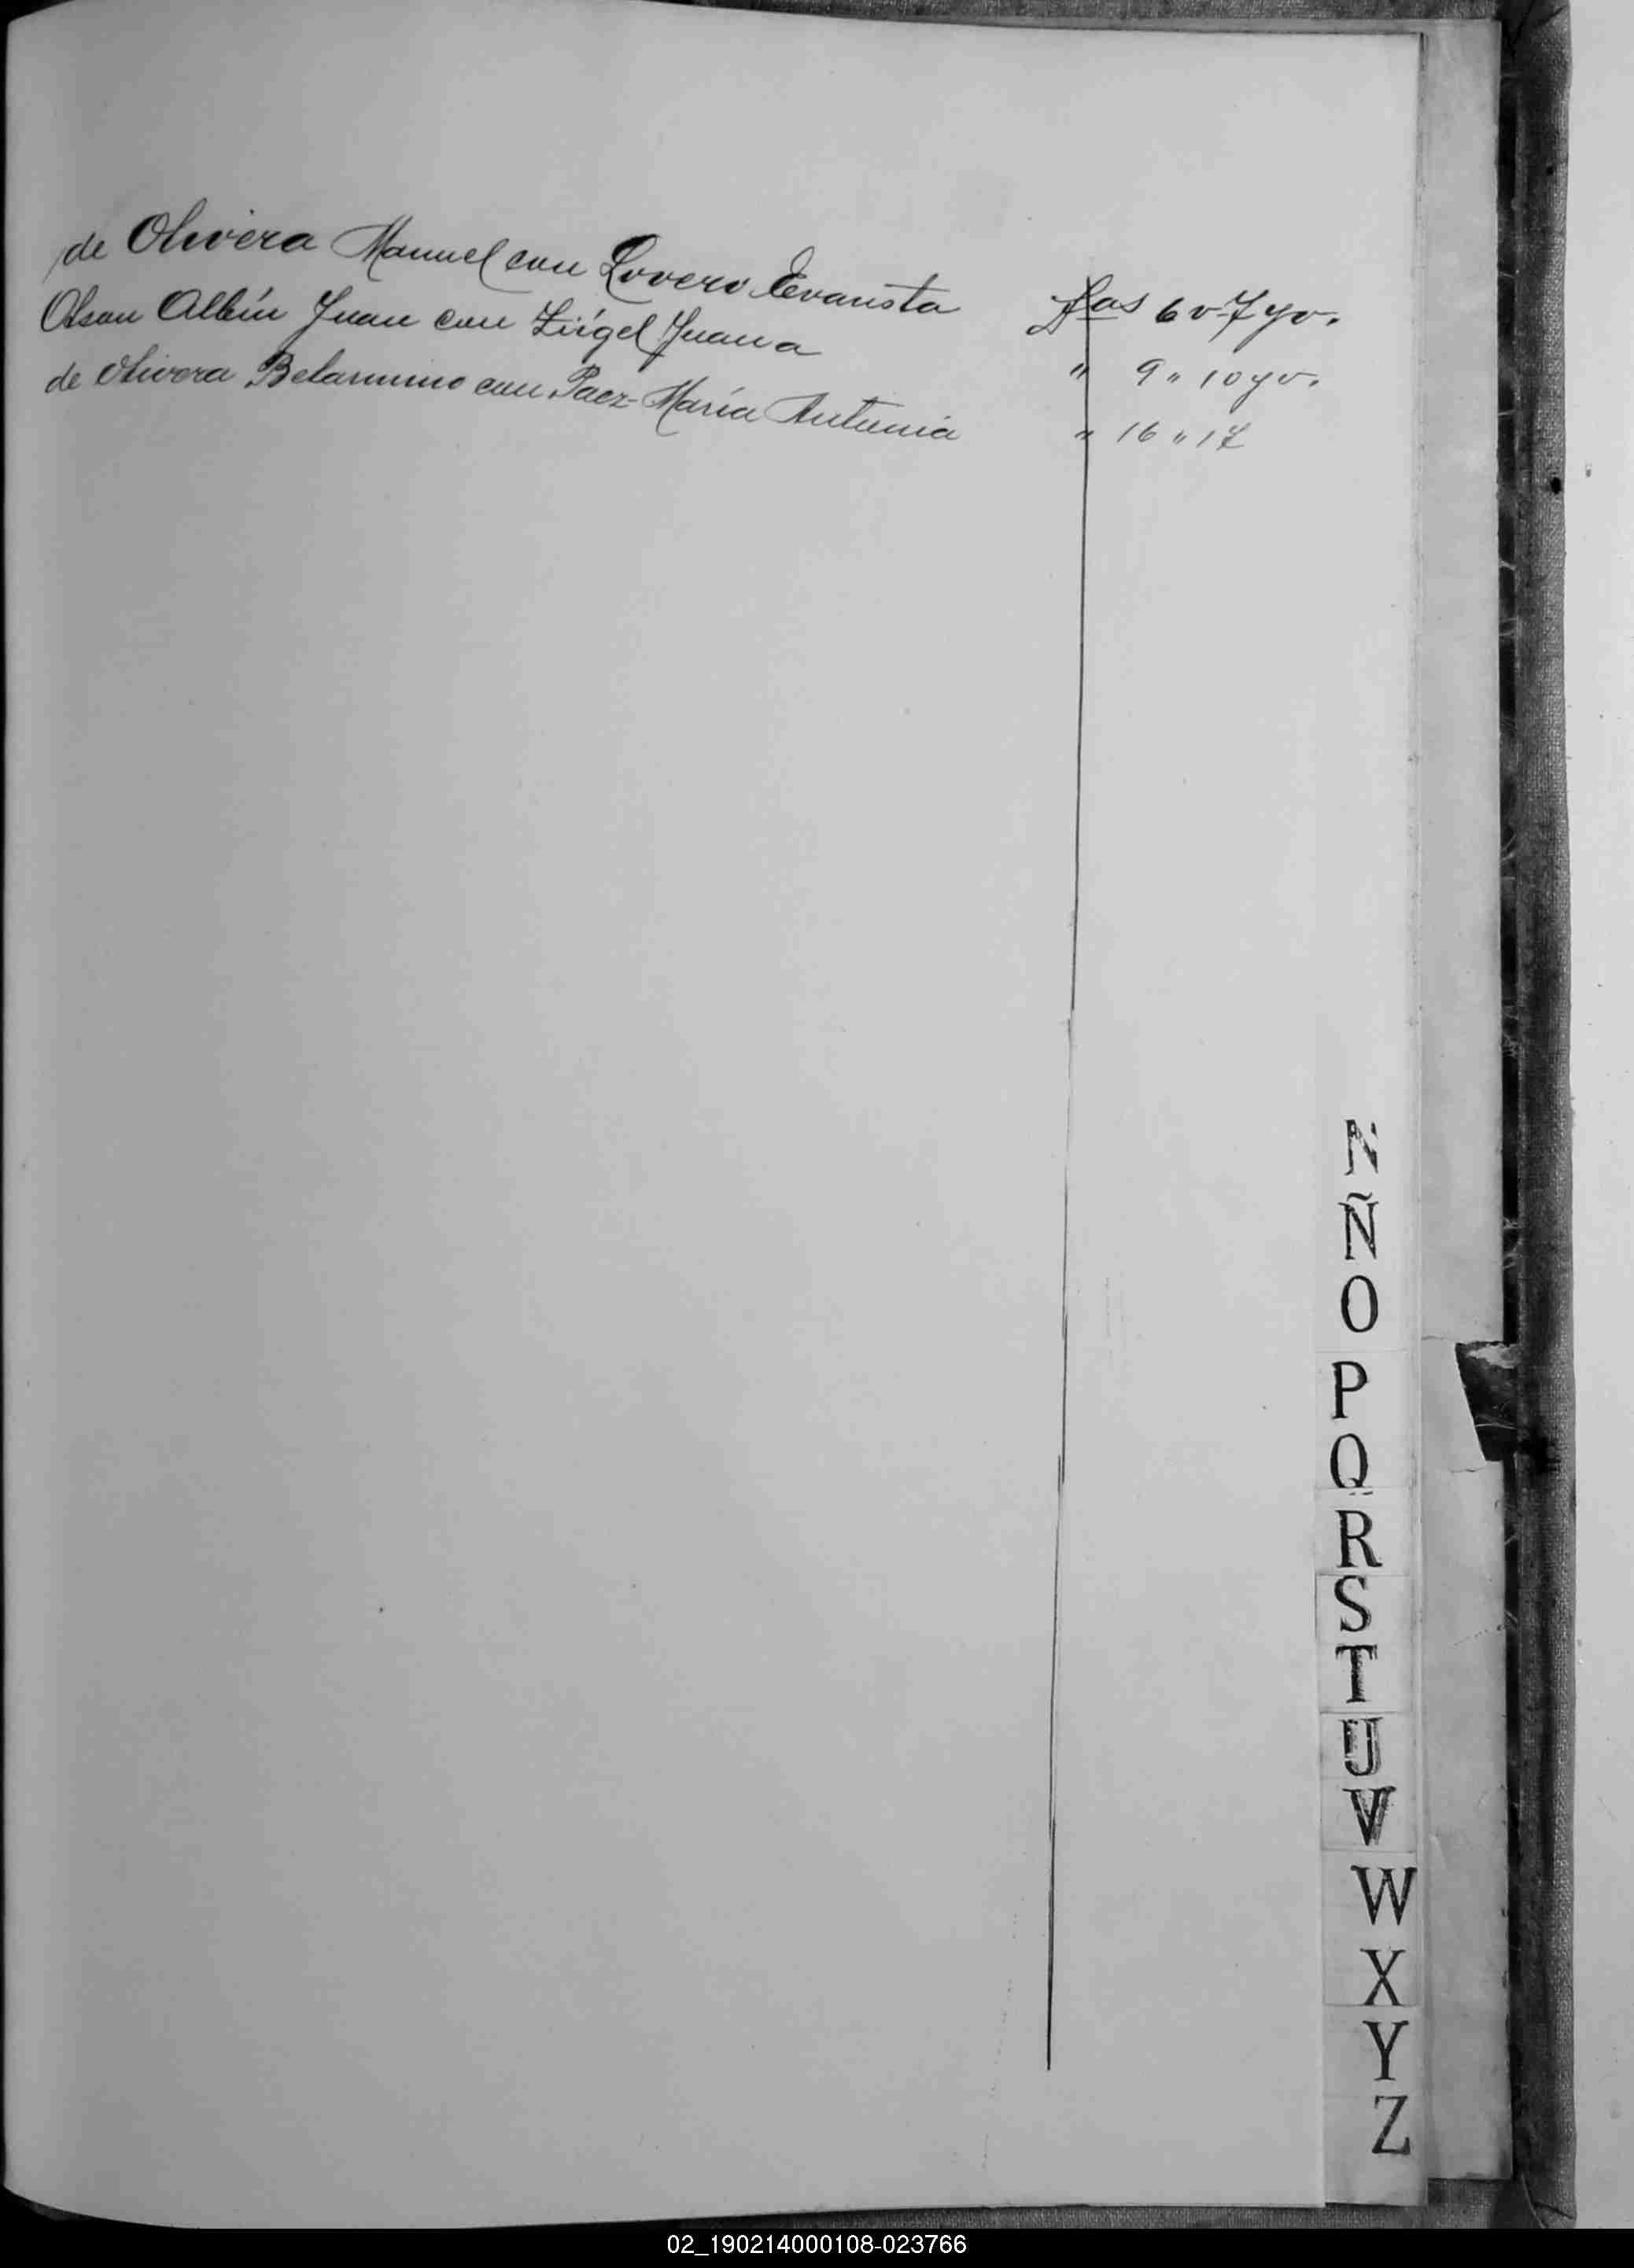 de Olivera Manuel con Lovero Evarista fas 6 v 7 yv.
Olsan Albín Juan con Zírgel Juana " 9 " 10 yv.
de Olivera Belarmino con Paez María Antonia " 16 " 17
N
Ñ
O
P
Q
R
S
T
U
V
W
X
Y
Z
02_190214000108-023766